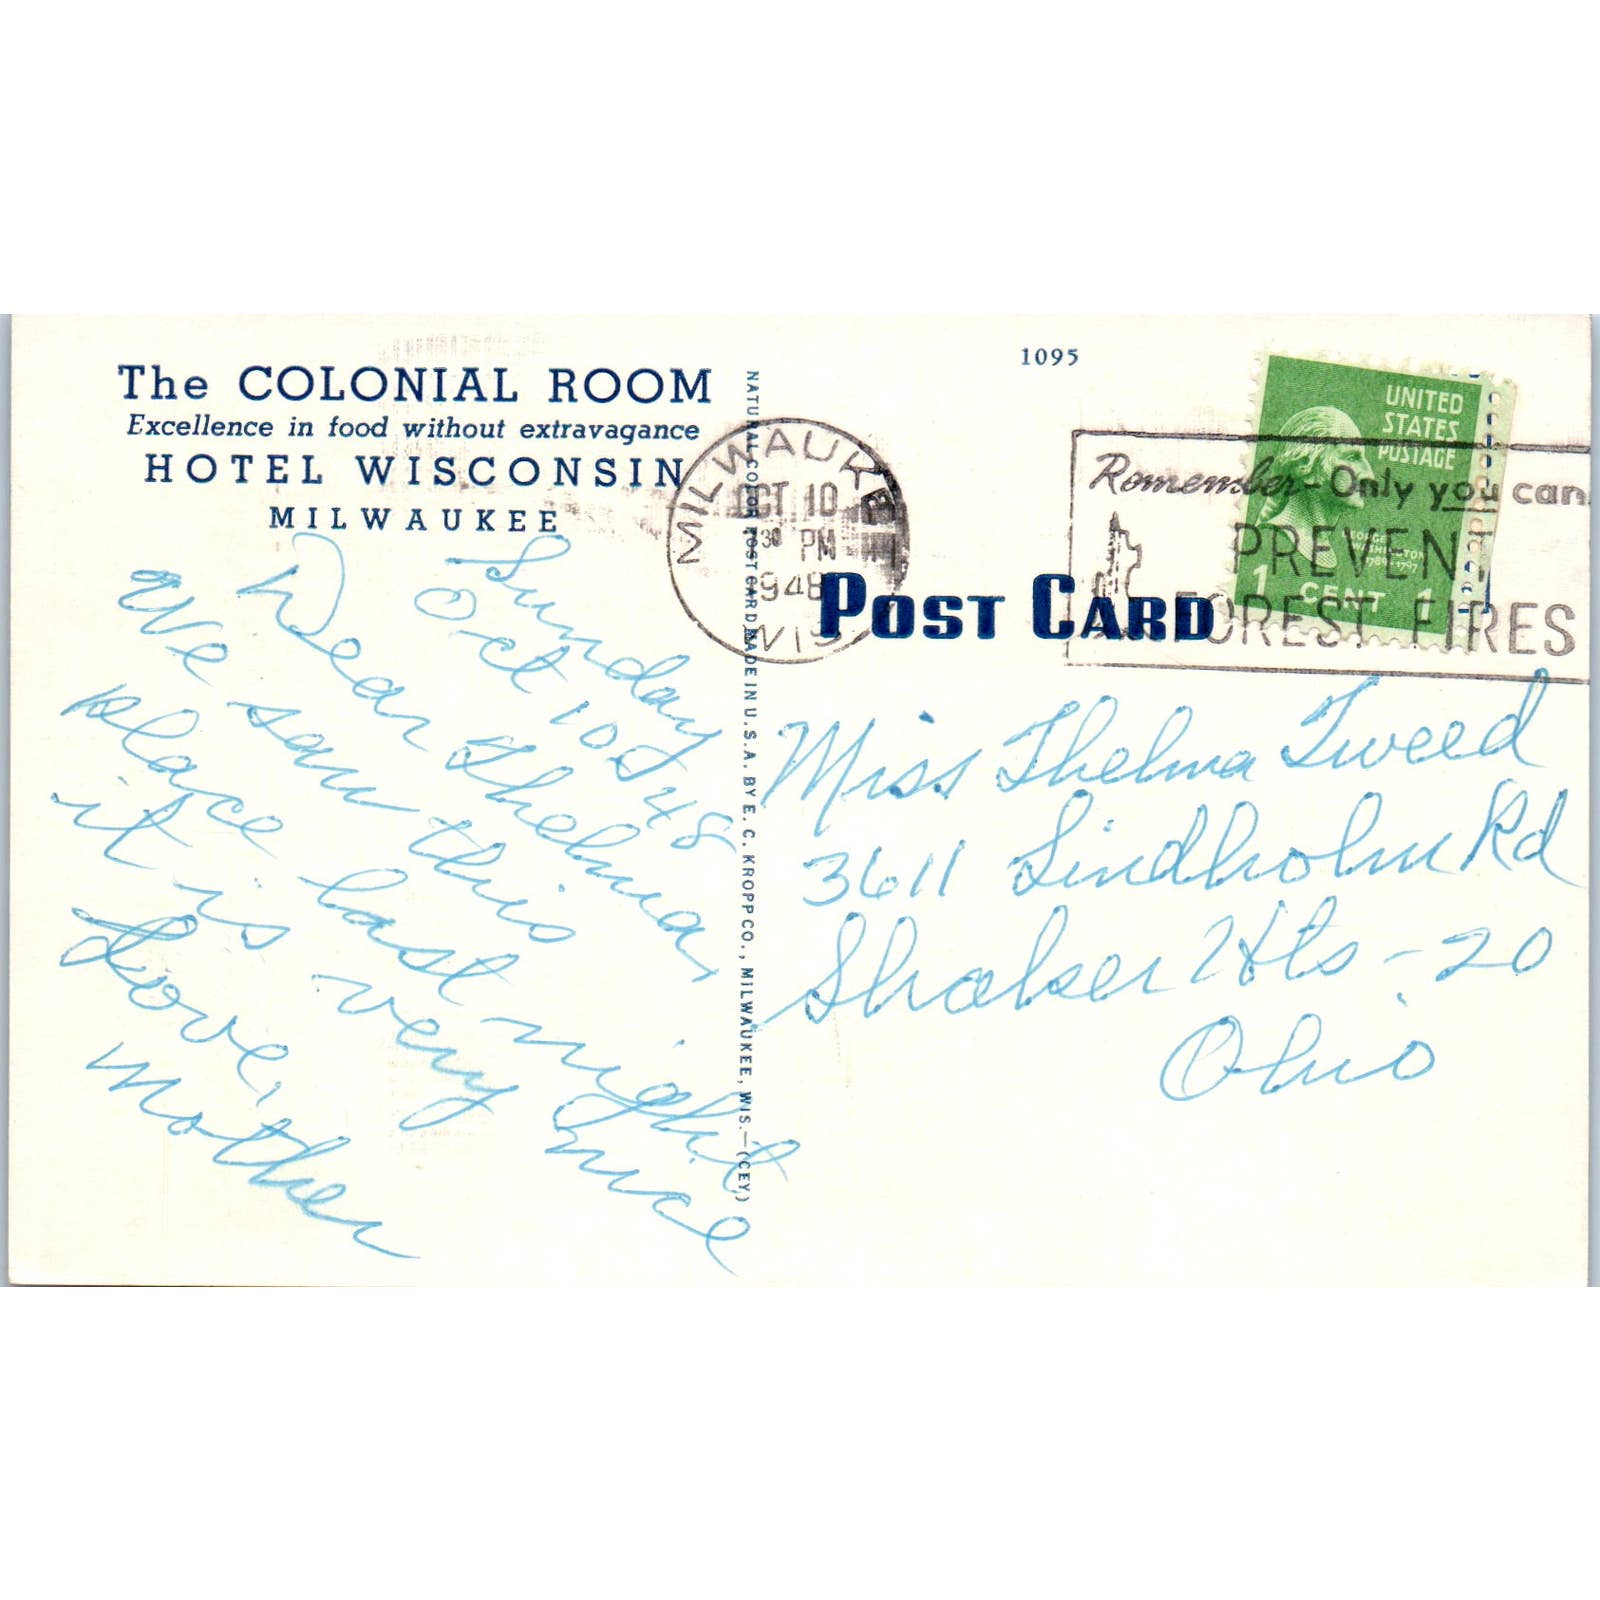 The COLONIAL ROOM
Excellence in food without extravagance
HOTEL WISCONSIN
MILWAUKEE
Sunday
Oct 10 - 48
Dear Thelma,
We saw this
place last night
it is very nice
Love,
Mother
NATURAL COLOR POST CARD MADE IN U.S.A. BY E. C. KROPP CO., MILWAUKEE, WIS.—(CEY)
1095
MILWAUKEE
OCT 10
30 PM
1948
WIS
Remember - Only you can
PREVENT
FOREST FIRES
UNITED
STATES
POSTAGE
GEORGE
WASHINGTON
1789-1797
1 CENT 1
POST CARD
Miss Thelma Tweed
3611 Lindholm Rd
Shaker Hts - 20
Ohio